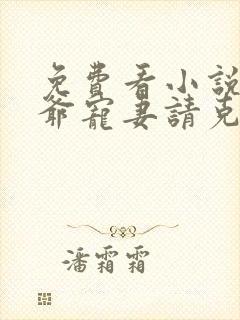 免費看小說
爺寵妻請克
潘霜霜